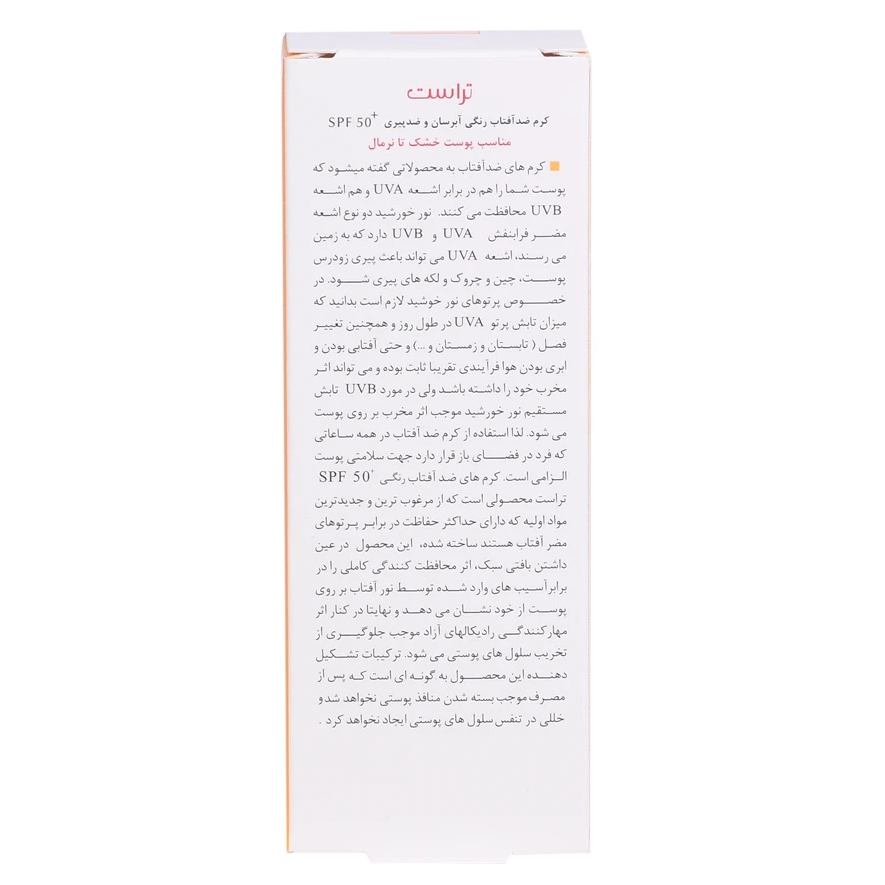 تراست
کرم ضدآفتاب رنگی آبرسان و ضدپیری SPF 50+
مناسب پوست خشک تا نرمال
■ کرم های ضدآفتاب به محصولاتی گفته میشود که
پوست شما را هم در برابر اشعه UVA و هم اشعه
UVB محافظت می کنند. نور خورشید دو نوع اشعه
مضر فرابنفش UVA و UVB دارد که به زمین
می رسند، اشعه UVA می تواند باعث پیری زودرس
پوست، چین و چروک و لکه های پیری شود. در
خصوص پرتوهای نور خوشید لازم است بدانید که
میزان تابش پرتو UVA در طول روز و همچنین تغییر
فصل ( تابستان و زمستان و ...) و حتی آفتابی بودن و
ابری بودن هوا فرآیندی تقریبا ثابت بوده و می تواند اثر
مخرب خود را داشته باشد ولی در مورد UVB تابش
مستقیم نور خورشید موجب اثر مخرب بر روی پوست
می شود. لذا استفاده از کرم ضد آفتاب در همه ساعاتی
که فرد در فضای باز قرار دارد جهت سلامتی پوست
الزامی است. کرم های ضد آفتاب رنگی SPF 50+
تراست محصولی است که از مرغوب ترین و جدیدترین
مواد اولیه که دارای حداکثر حفاظت در برابر پرتوهای
مضر آفتاب هستند ساخته شده، این محصول در عین
داشتن بافتی سبک، اثر محافظت کنندگی کاملی را در
برابرآسیب های وارد شده توسط نور آفتاب بر روی
پوست از خود نشان می دهد و نهایتا در کنار اثر
مهارکنندگی رادیکالهای آزاد موجب جلوگیری از
تخریب سلول های پوستی می شود. ترکیبات تشکیل
دهنده این محصول به گونه ای است که پس از
مصرف موجب بسته شدن منافذ پوستی نخواهد شد و
خللی در تنفس سلول های پوستی ایجاد نخواهد کرد .